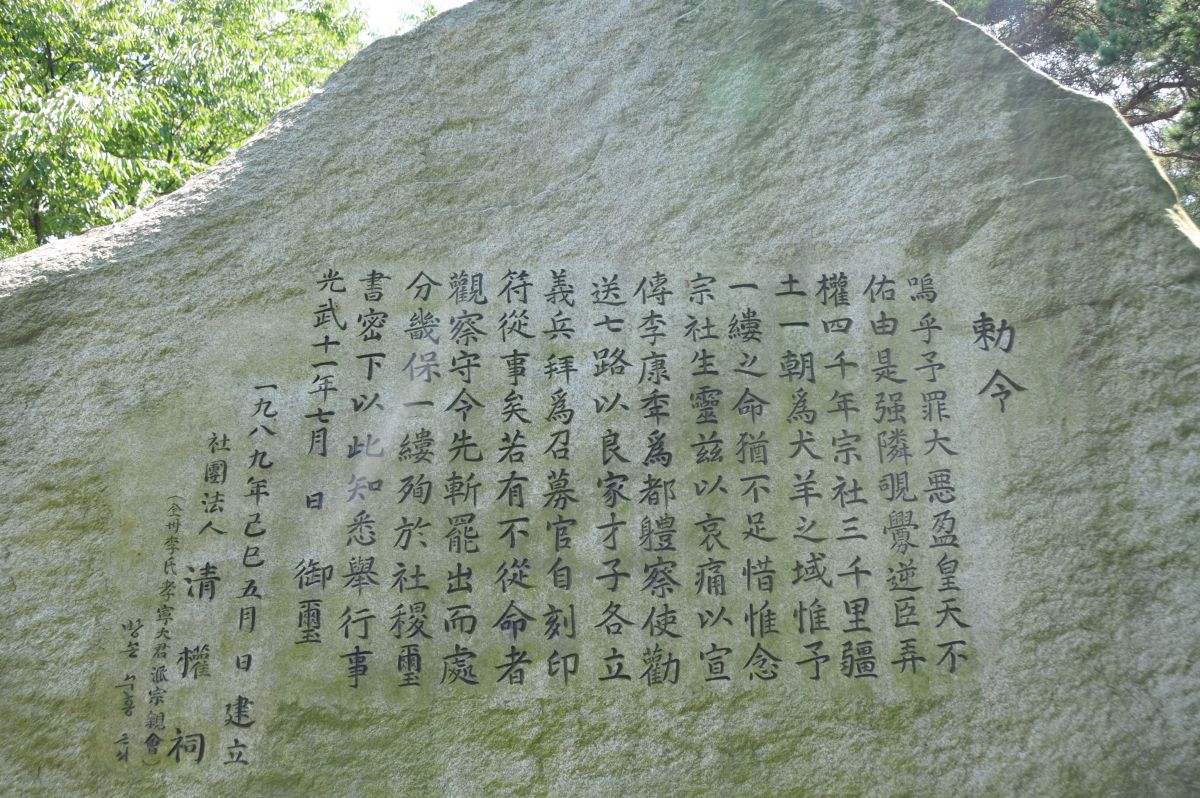 勅令
嗚乎予罪大悪盈皇天不
佑由是强隣覗釁逆臣弄
權四千年宗社三千里疆
土一朝爲犬羊之域惟予
一縷之命猶不足惜惟念
宗社生靈玆以哀痛以宣
傳李康秊爲都軆察使勸
送七路以良家才子各立
義兵拜爲召募官自刻印
符從事矣若有不從命者
觀察守令先斬罷出而處
分畿保一縷殉於社稷璽
書密下以此知悉舉行事
光武十一年七月 日 御璽
一九八九年己巳五月 日 建立
社團法人 清權祠
(全州李氏孝寧大君派宗親會)